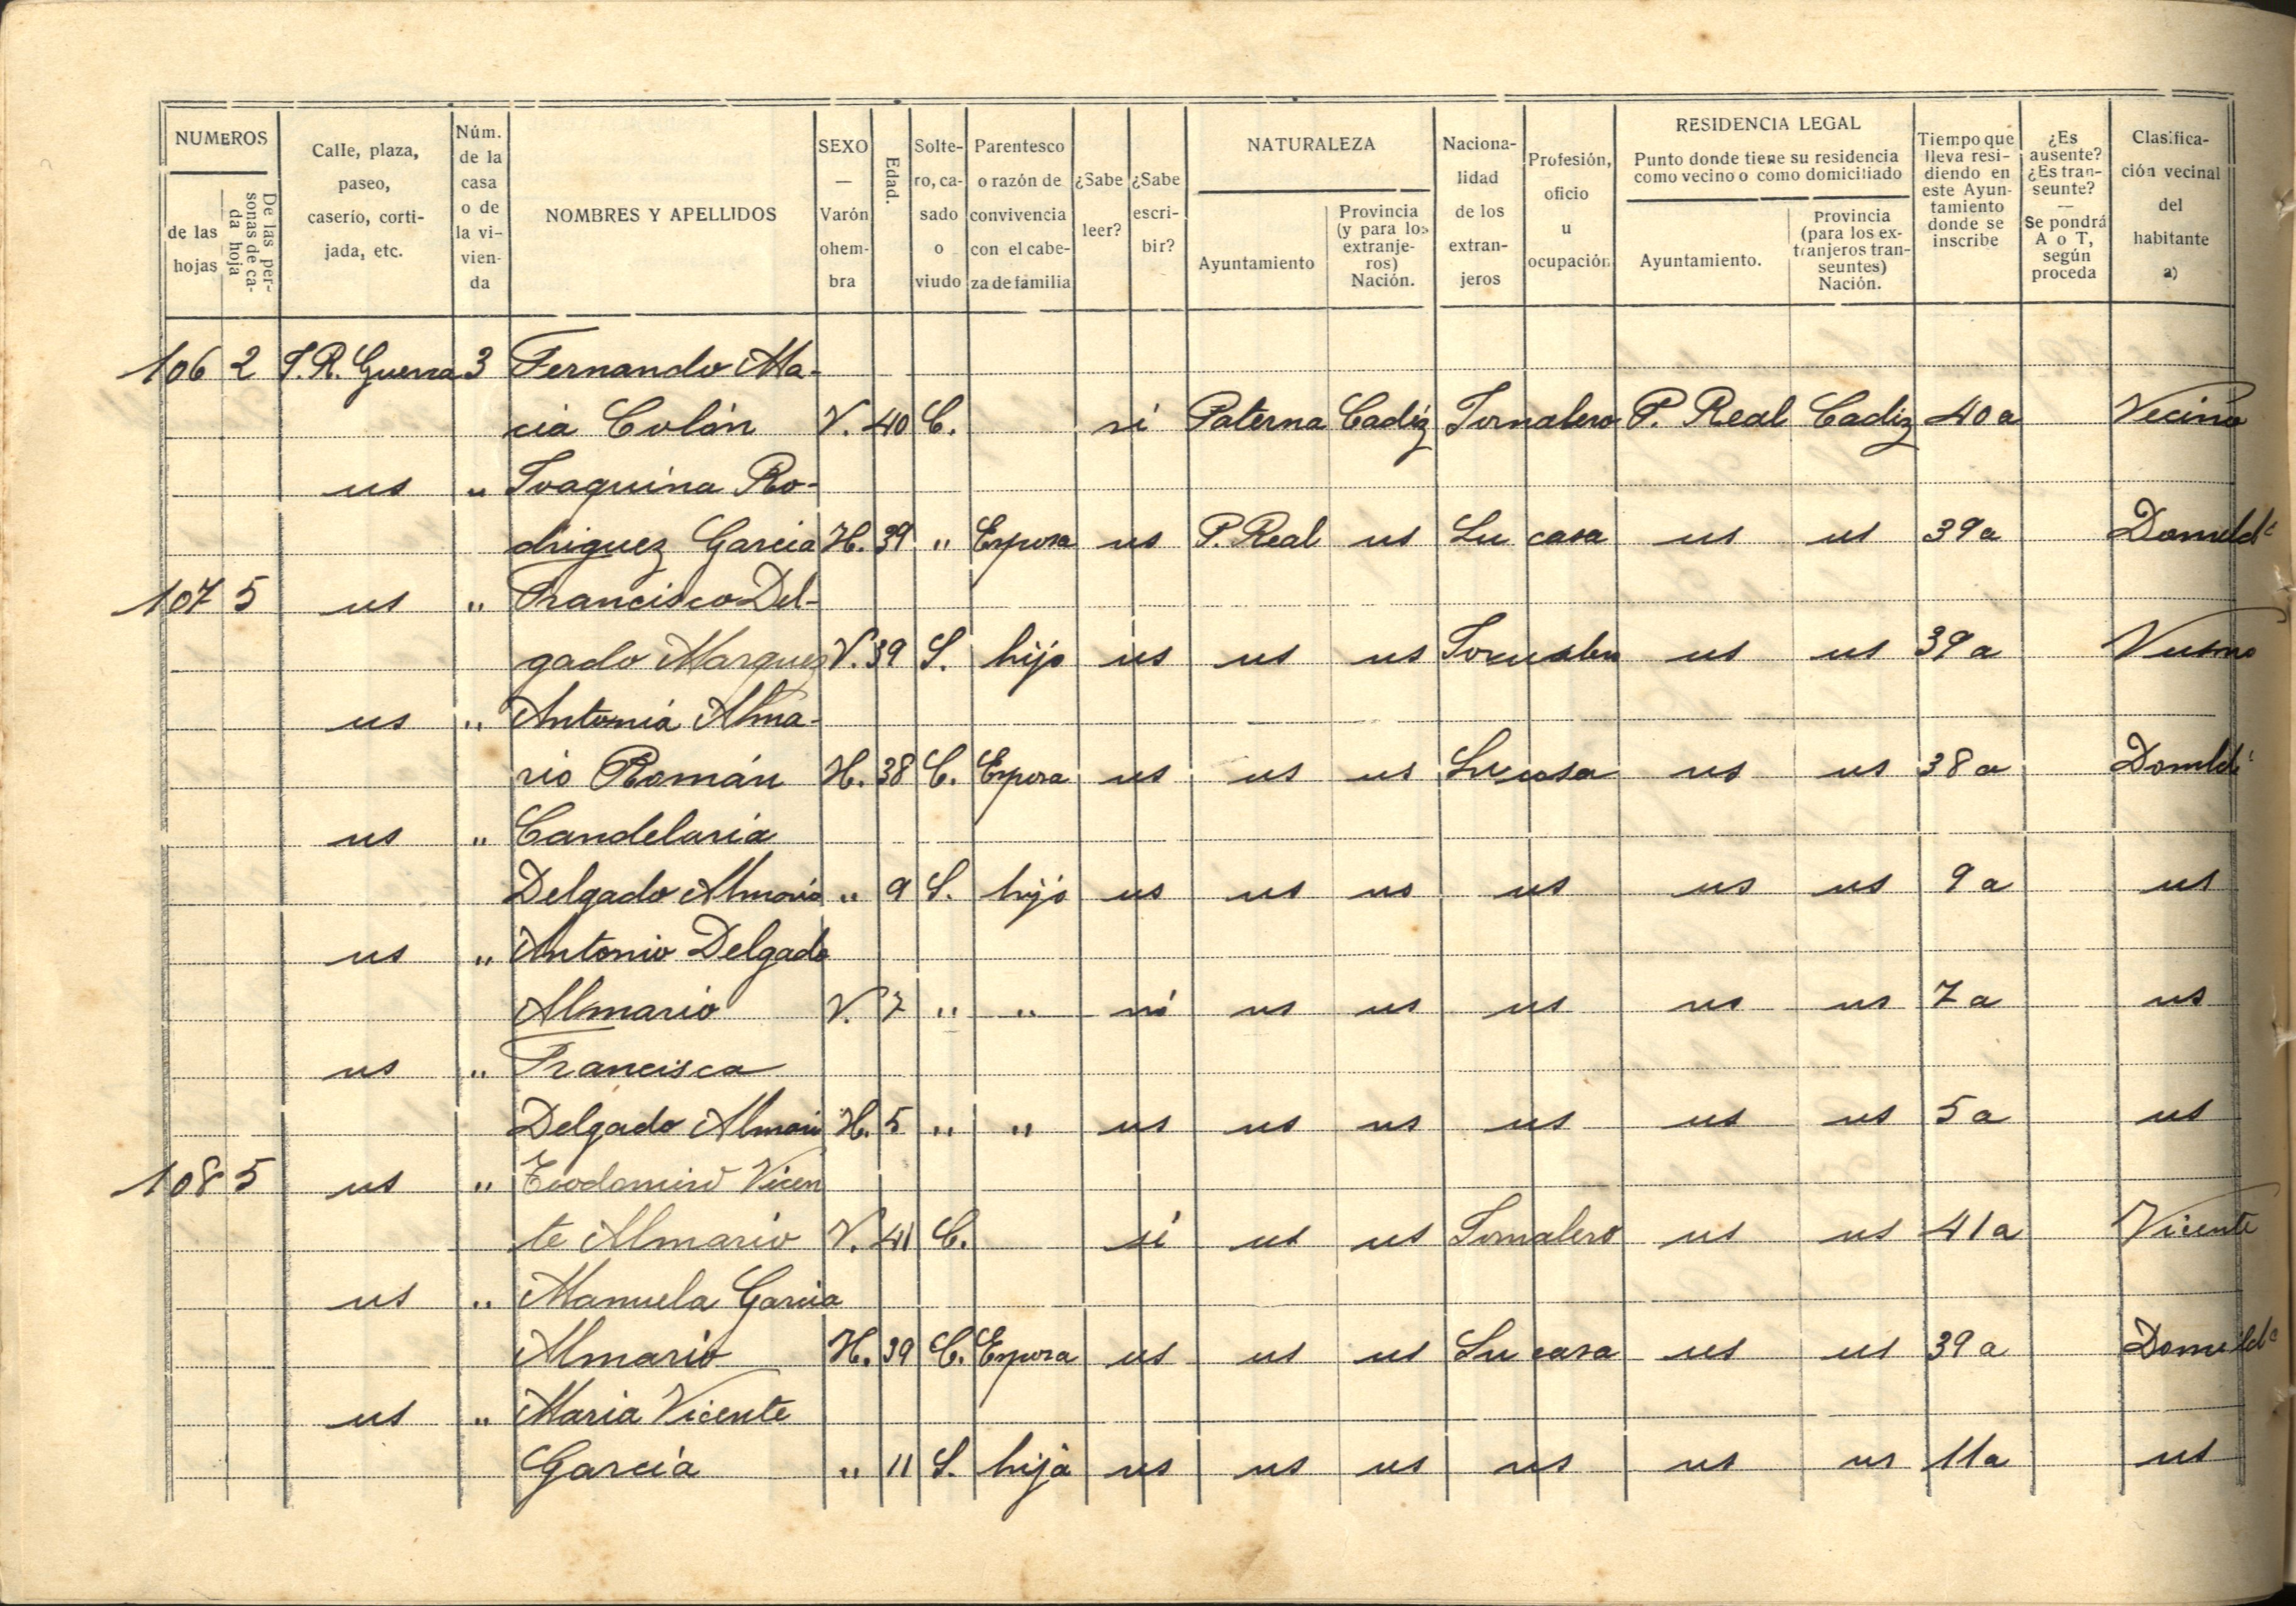 NUMEROS
de las hojas
De las personas de cada hoja
Calle, plaza, paseo, caserío, cortijada, etc.
Núm. de la casa o de la vivienda
NOMBRES Y APELLIDOS
SEXO — Varón ohembra
Edad.
Soltero, casado o viudo
Parentesco o razón de convivencia con el cabeza de familia
¿Sabe leer?
¿Sabe escribir?
NATURALEZA
Ayuntamiento
Provincia (y para los extranjeros) Nación.
Nacionalidad de los extranjeros
Profesión, oficio u ocupación
RESIDENCIA LEGAL
Punto donde tiene su residencia como vecino o como domiciliado
Ayuntamiento.
Provincia (para los extranjeros transeuntes) Nación.
Tiempo que lleva residiendo en este Ayuntamiento donde se inscribe
¿Es ausente? ¿Es transeunte? — Se pondrá A o T, según proceda
Clasificación vecinal del habitante a)
106 2 J.R. Guerra 3 Fernando Ma-
cia Colón V. 40 C. si Paterna Cadiz Jornalero P. Real Cadiz 40 a Vecino
us " Joaquina Ro-
driguez Garcia H. 39 " Esposa us P. Real us Su casa us us 39 a
107 5 us " Francisco Del-
gado Marquez V. 39 S. hijo us us us us us 39 a
us " Antonia Alma-
rio Román H. 38 C. Esposa us us us Su casa us us 38 a
us " Candelaria
Delgado Almario " 9 S. hijo us us us us us us 9 a us
us " Antonio Delgado
Almario V. 7 " " us us us us us 7 a us
us " Francisca
Delgado H. 5 " " us us us us us us 5 a us
108 5 us " Teodomiro Vicen
te Almario V. 41 C. si us us Jornalero us us 41 a Vicente
us " Manuela Garcia
Almario H. 39 C. Esposa us us us Su casa us us 39 a
us " Maria Vicente
García " 11 S. hija us us us us us us 11 a us